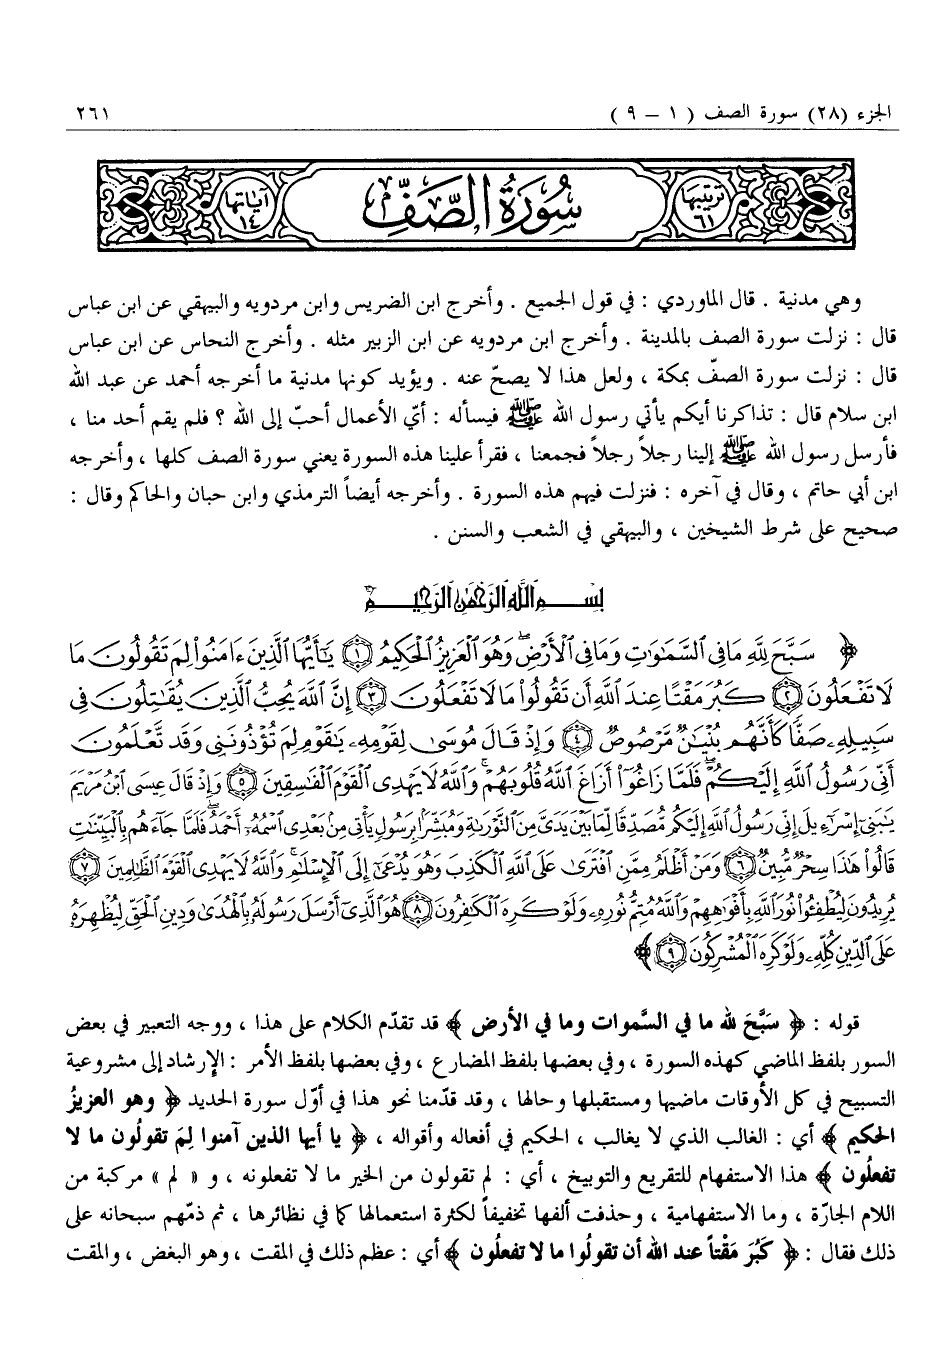 الجزء (٢٨) سورة الصف ( ١ – ٩ ) ٢٦١
ترتيبها ٦١ سُورَةُ الصَّفِّ آياتها ١٤
وهي مدنية . قال الماوردي : في قول الجميع . وأخرج ابن الضريس وابن مردويه والبيهقي عن ابن عباس
قال : نزلت سورة الصف بالمدينة . وأخرج ابن مردويه عن ابن الزبير مثله . وأخرج النحاس عن ابن عباس
قال : نزلت سورة الصفّ بمكة ، ولعل هذا لا يصحّ عنه . ويؤيد كونها مدنية ما أخرجه أحمد عن عبد الله
ابن سلام قال : تذاكرنا أيكم يأتي رسول الله ﷺ فيسأله : أيّ الأعمال أحبّ إلى الله ؟ فلم يقم أحد منا ،
فأرسل رسول الله ﷺ إلينا رجلاً رجلاً فجمعنا ، فقرأ علينا هذه السورة يعني سورة الصف كلها ، وأخرجه
ابن أبي حاتم ، وقال في آخره : فنزلت فيهم هذه السورة . وأخرجه أيضاً الترمذي وابن حبان والحاكم وقال :
صحيح على شرط الشيخين ، والبيهقي في الشعب والسنن .
بِسْمِ اللَّهِ الرَّحْمَٰنِ الرَّحِيمِ
﴿ سَبَّحَ لِلَّهِ مَا فِي ٱلسَّمَٰوَٰتِ وَمَا فِي ٱلْأَرْضِۖ وَهُوَ ٱلْعَزِيزُ ٱلْحَكِيمُ ۝١ يَٰٓأَيُّهَا ٱلَّذِينَ ءَامَنُوا۟ لِمَ تَقُولُونَ مَا
لَا تَفْعَلُونَ ۝٢ كَبُرَ مَقْتًا عِندَ ٱللَّهِ أَن تَقُولُوا۟ مَا لَا تَفْعَلُونَ ۝٣ إِنَّ ٱللَّهَ يُحِبُّ ٱلَّذِينَ يُقَٰتِلُونَ فِي
سَبِيلِهِۦ صَفًّا كَأَنَّهُم بُنْيَٰنٌ مَّرْصُوصٌ ۝٤ وَإِذْ قَالَ مُوسَىٰ لِقَوْمِهِۦ يَٰقَوْمِ لِمَ تُؤْذُونَنِي وَقَد تَّعْلَمُونَ
أَنِّي رَسُولُ ٱللَّهِ إِلَيْكُمْۖ فَلَمَّا زَاغُوٓا۟ أَزَاغَ ٱللَّهُ قُلُوبَهُمْۚ وَٱللَّهُ لَا يَهْدِي ٱلْقَوْمَ ٱلْفَٰسِقِينَ ۝٥ وَإِذْ قَالَ عِيسَى ٱبْنُ مَرْيَمَ
يَٰبَنِيٓ إِسْرَٰٓءِيلَ إِنِّي رَسُولُ ٱللَّهِ إِلَيْكُم مُّصَدِّقًا لِّمَا بَيْنَ يَدَيَّ مِنَ ٱلتَّوْرَىٰةِ وَمُبَشِّرًۢا بِرَسُولٍ يَأْتِي مِنۢ بَعْدِي ٱسْمُهُۥٓ أَحْمَدُۖ فَلَمَّا جَآءَهُم بِٱلْبَيِّنَٰتِ
قَالُوا۟ هَٰذَا سِحْرٌ مُّبِينٌ ۝٦ وَمَنْ أَظْلَمُ مِمَّنِ ٱفْتَرَىٰ عَلَى ٱللَّهِ ٱلْكَذِبَ وَهُوَ يُدْعَىٰٓ إِلَى ٱلْإِسْلَٰمِۚ وَٱللَّهُ لَا يَهْدِي ٱلْقَوْمَ ٱلظَّٰلِمِينَ ۝٧
يُرِيدُونَ لِيُطْفِـُٔوا۟ نُورَ ٱللَّهِ بِأَفْوَٰهِهِمْ وَٱللَّهُ مُتِمُّ نُورِهِۦ وَلَوْ كَرِهَ ٱلْكَٰفِرُونَ ۝٨ هُوَ ٱلَّذِيٓ أَرْسَلَ رَسُولَهُۥ بِٱلْهُدَىٰ وَدِينِ ٱلْحَقِّ لِيُظْهِرَهُۥ
عَلَى ٱلدِّينِ كُلِّهِۦ وَلَوْ كَرِهَ ٱلْمُشْرِكُونَ ۝٩ ﴾
قوله : ﴿ سَبَّحَ لله ما في السَّموات وما في الأرض ﴾ قد تقدّم الكلام على هذا ، ووجه التعبير في بعض
السور بلفظ الماضي كهذه السورة ، وفي بعضها بلفظ المضارع ، وفي بعضها بلفظ الأمر : الإرشاد إلى مشروعية
التسبيح في كل الأوقات ماضيها ومستقبلها وحالها ، وقد قدّمنا نحو هذا في أوّل سورة الحديد ﴿ وهو العزيزُ
الحكيم ﴾ أي : الغالب الذي لا يغالب ، الحكيم في أفعاله وأقواله ، ﴿ يا أيها الذين آمنوا لِمَ تقولُون ما لا
تفعلُون ﴾ هذا الاستفهام للتقريع والتوبيخ ، أي : لم تقولون من الخير ما لا تفعلونه ، و « لم » مركبة من
اللام الجارّة ، وما الاستفهامية ، وحذفت ألفها تخفيفاً لكثرة استعمالها كما في نظائرها ، ثم ذمّهم سبحانه على
ذلك فقال : ﴿ كَبُرَ مَقْتاً عند الله أن تقولُوا ما لا تفعلُون ﴾ أي : عظم ذلك في المقت ، وهو البغض ، والمقت